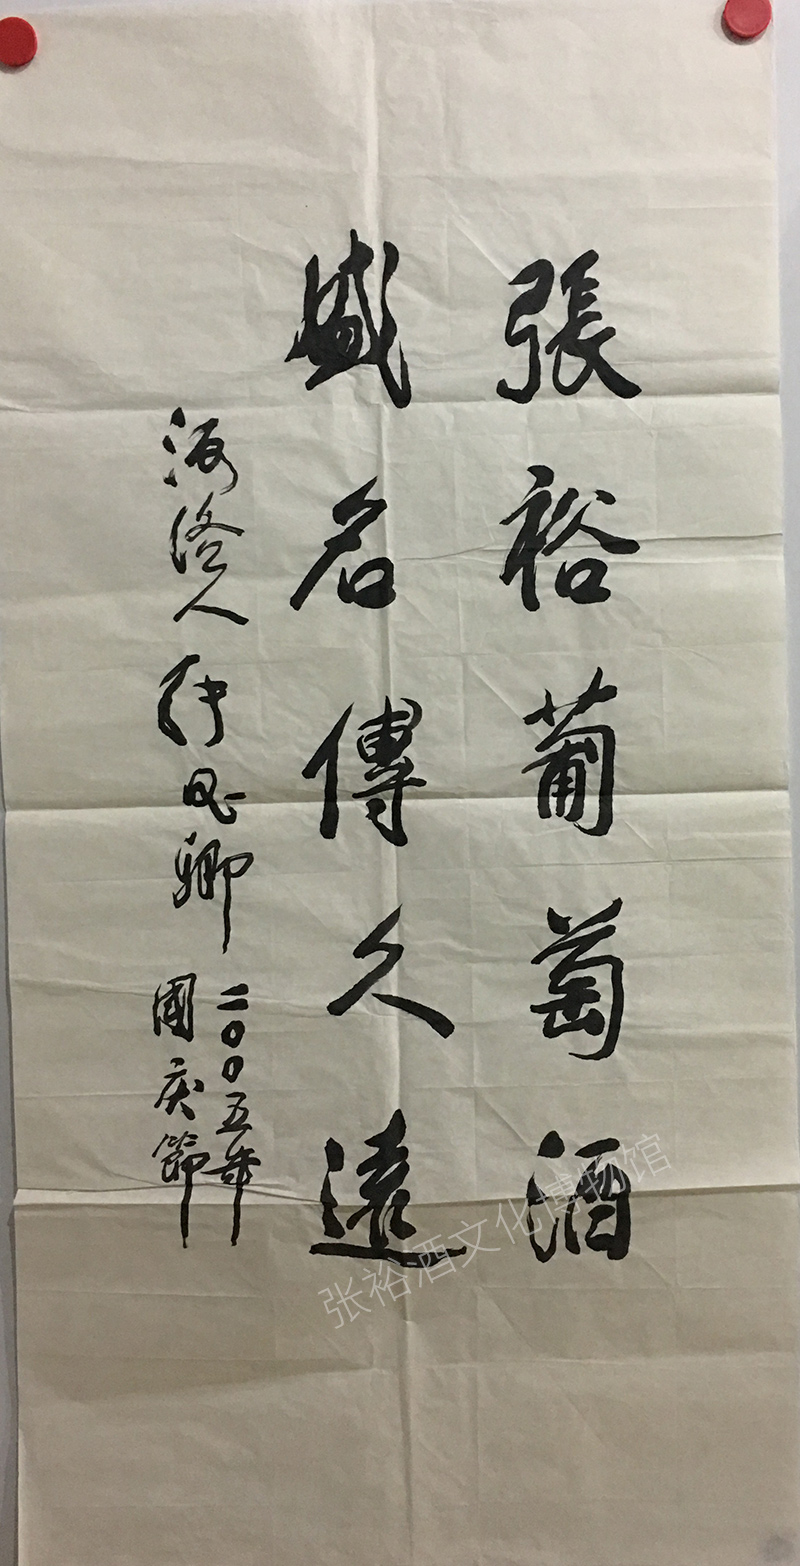 張裕葡萄酒
盛名傳久遠
河洛人
卿
二〇〇五年
國庆節
张裕酒文化博物馆